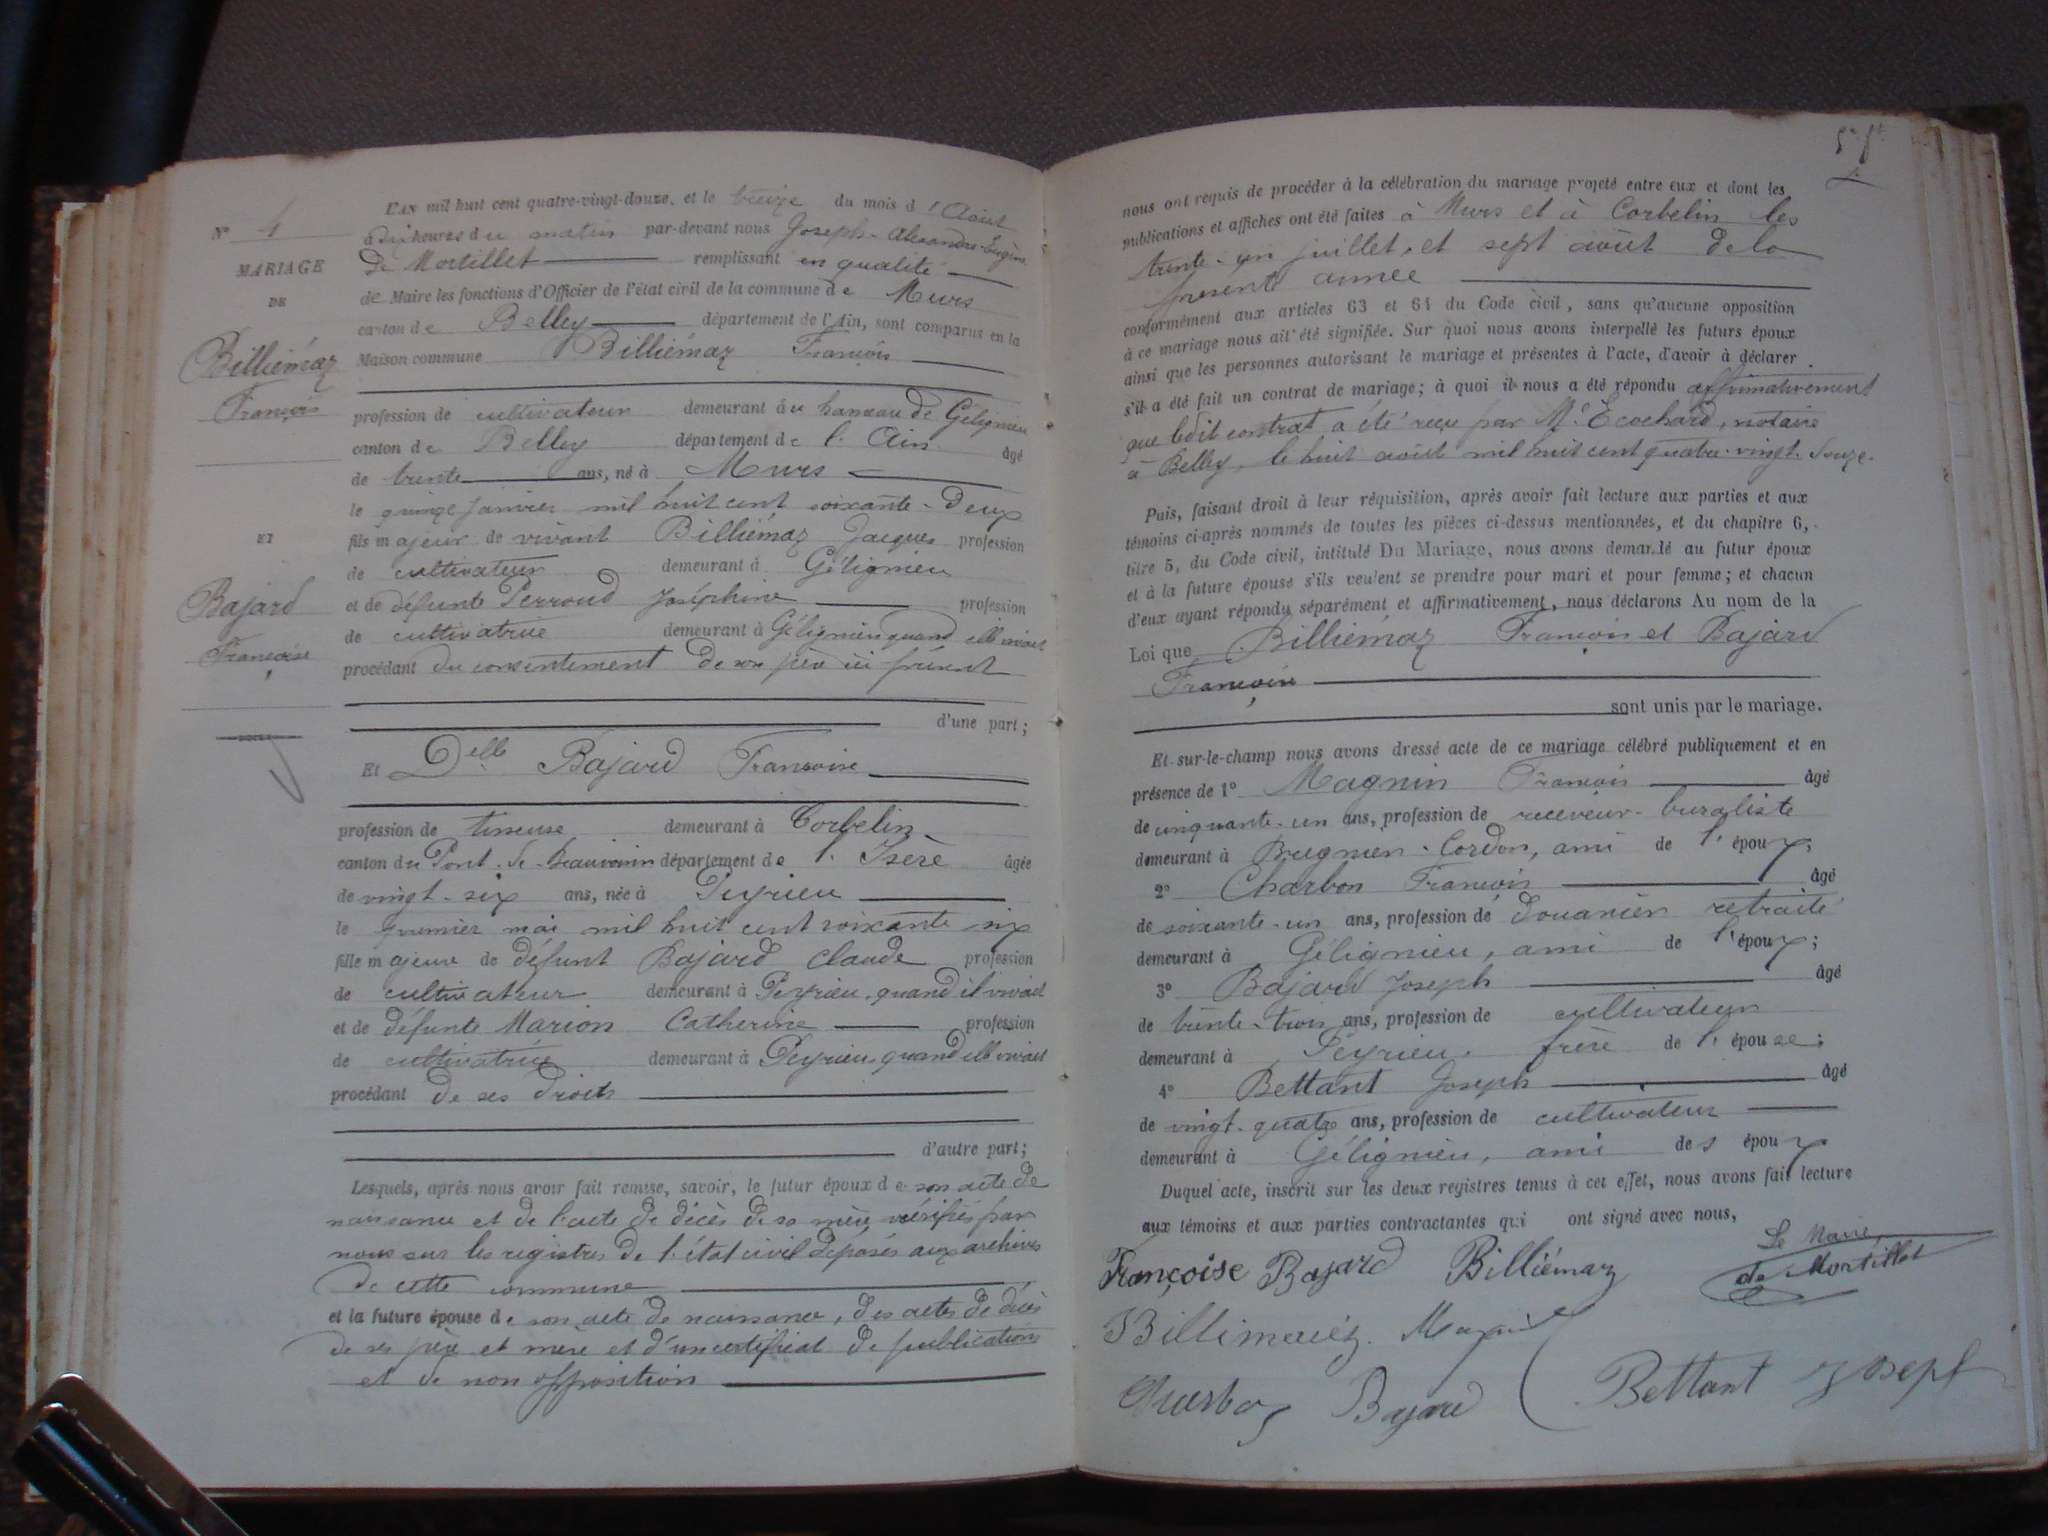 N° 4
MARIAGE
DE
Billiémaz
François
ET
Bajard
Françoise
L'AN mil huit cent quatre-vingt-douze, et le treize du mois d'Août
à dix heures du matin par-devant nous Joseph-Alexandre-Eugène
de Mortillet remplissant en qualité
de Maire les fonctions d'Officier de l'état civil de la commune de Murs
canton de Belley département de l'Ain, sont comparus en la
Maison commune Billiémaz François
profession de cultivateur demeurant au hameau de Gélignieu
canton de Belley département de l'Ain âgé
de trente ans, né à Murs
le quinze janvier mil huit cent soixante-deux
fils majeur de vivant Billiémaz Jacques profession
de cultivateur demeurant à Gélignieu
et de défunte Perroud Joséphine profession
de cultivatrice demeurant à Gélignieu quand elle vivait
procédant du consentement de son père ici présent
d'une part ;
Et Delle Bajard Françoise
profession de tisseuse demeurant à Corbelin
canton du Pont-de-Beauvoisin département de l'Isère âgée
de vingt-six ans, née à Peyrieu
le premier mai mil huit cent soixante six
fille majeure de défunt Bajard Claude profession
de cultivateur demeurant à Peyrieu, quand il vivait
et de défunte Marion Catherine profession
de cultivatrice demeurant à Peyrieu, quand elle vivait
procédant de ses droits
d'autre part ;
Lesquels, après nous avoir fait remise, savoir, le futur époux de son acte de
naissance et de l'acte de décès de sa mère, vérifiés par
nous sur les registres de l'état civil déposés aux archives
de cette commune
et la future épouse de son acte de naissance, des actes de décès
de ses père et mère et d'un certificat de publications
et de non opposition
nous ont requis de procéder à la célébration du mariage projeté entre eux et dont les
publications et affiches ont été faites à Murs et à Corbelin les
trente-un juillet, et sept août de la
présente année
conformément aux articles 63 et 64 du Code civil, sans qu'aucune opposition
à ce mariage nous ait été signifiée. Sur quoi nous avons interpellé les futurs époux
ainsi que les personnes autorisant le mariage et présentes à l'acte, d'avoir à déclarer
s'il a été fait un contrat de mariage ; à quoi il nous a été répondu affirmativement
que ledit contrat a été reçu par Me Ecochard, notaire
à Belley, le huit août mil huit cent quatre-vingt-douze.
Puis, faisant droit à leur réquisition, après avoir fait lecture aux parties et aux
témoins ci-après nommés de toutes les pièces ci-dessus mentionnées, et du chapitre 6,
titre 5, du Code civil, intitulé Du Mariage, nous avons demandé au futur époux
et à la future épouse s'ils veulent se prendre pour mari et pour femme ; et chacun
d'eux ayant répondu séparément et affirmativement, nous déclarons Au nom de la
Loi que Billiémaz François et Bajard
Françoise
sont unis par le mariage.
Et sur-le-champ nous avons dressé acte de ce mariage célébré publiquement et en
présence de 1° Magnin François âgé
de cinquante-un ans, profession de receveur-buraliste
demeurant à Brégnier-Cordon, ami de l'époux ;
2° Charbon François âgé
de soixante-un ans, profession de douanier retraité
demeurant à Gélignieu, ami de l'époux ;
3° Bajard Joseph âgé
de trente-trois ans, profession de cultivateur
demeurant à Peyrieu, frère de l'épouse ;
4° Bettant Joseph âgé
de vingt-quatre ans, profession de cultivateur
demeurant à Gélignieu, ami des époux
Duquel acte, inscrit sur les deux registres tenus à cet effet, nous avons fait lecture
aux témoins et aux parties contractantes qui ont signé avec nous,
Le Maire,
Françoise Bajard Billiémaz de Mortillet
Billimaiéz. Magnin
Charbon Bajard Bettant Joseph